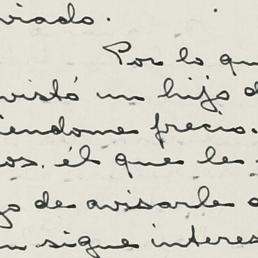 viado.
Por lo qu
vistó un hijo d
iendome precio.
os. él que les
go de avisarle a
n sigue interes